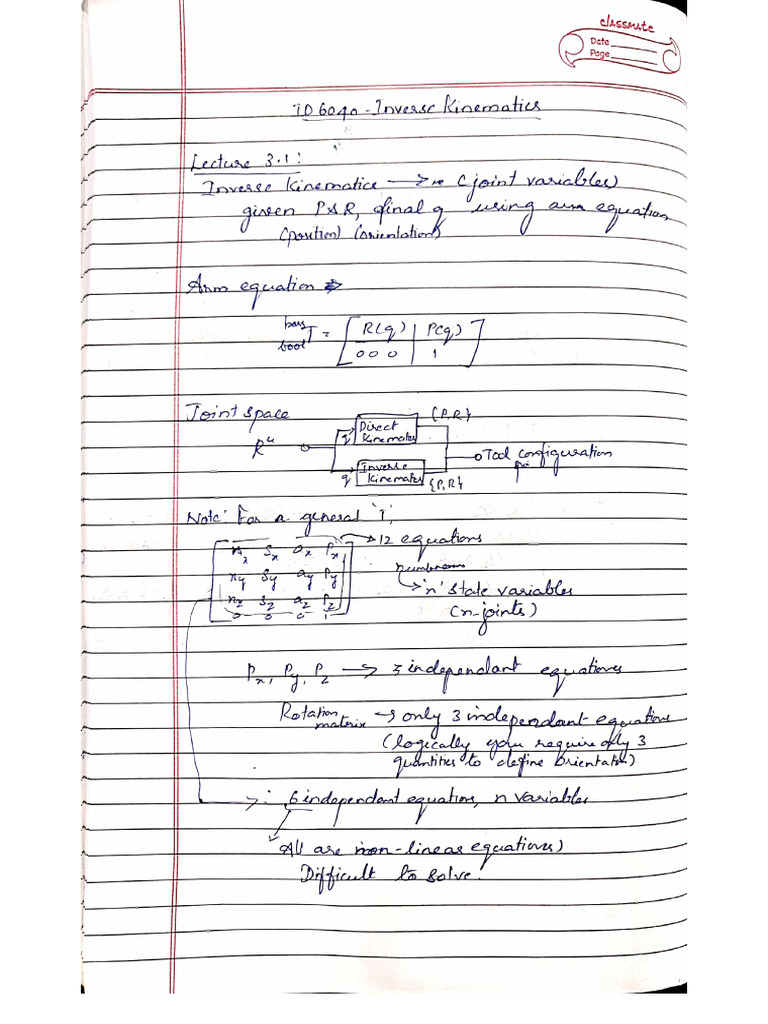 classmate
Date
Page
ID6040 - Inverse Kinematics
Lecture 3.1:
Inverse Kinematics → (joint variables)
given P & R, find q using arm equation
(position) (orientation)
Arm equation ⇒
base
tool T = [ R(q) | P(q) ]
0 0 0 | 1
Joint space
{P,R}
q Direct
Kinematics
Rⁿ
Tool configuration
q Inverse
Kinematics
{P,R}
Note: For a general T,
nx sx ax Px → 12 equations
ny sy ay Py
nz sz az Pz → 'n' state variables
0 0 0 1 (n-joints)
Px, Py, Pz → 3 independant equations
Rotation
matrix → only 3 independant equations
(logically you require only 3
quantities to define orientation)
→ ∴ 6 independant equations, n variables
All are non-linear equations)
Difficult to solve.